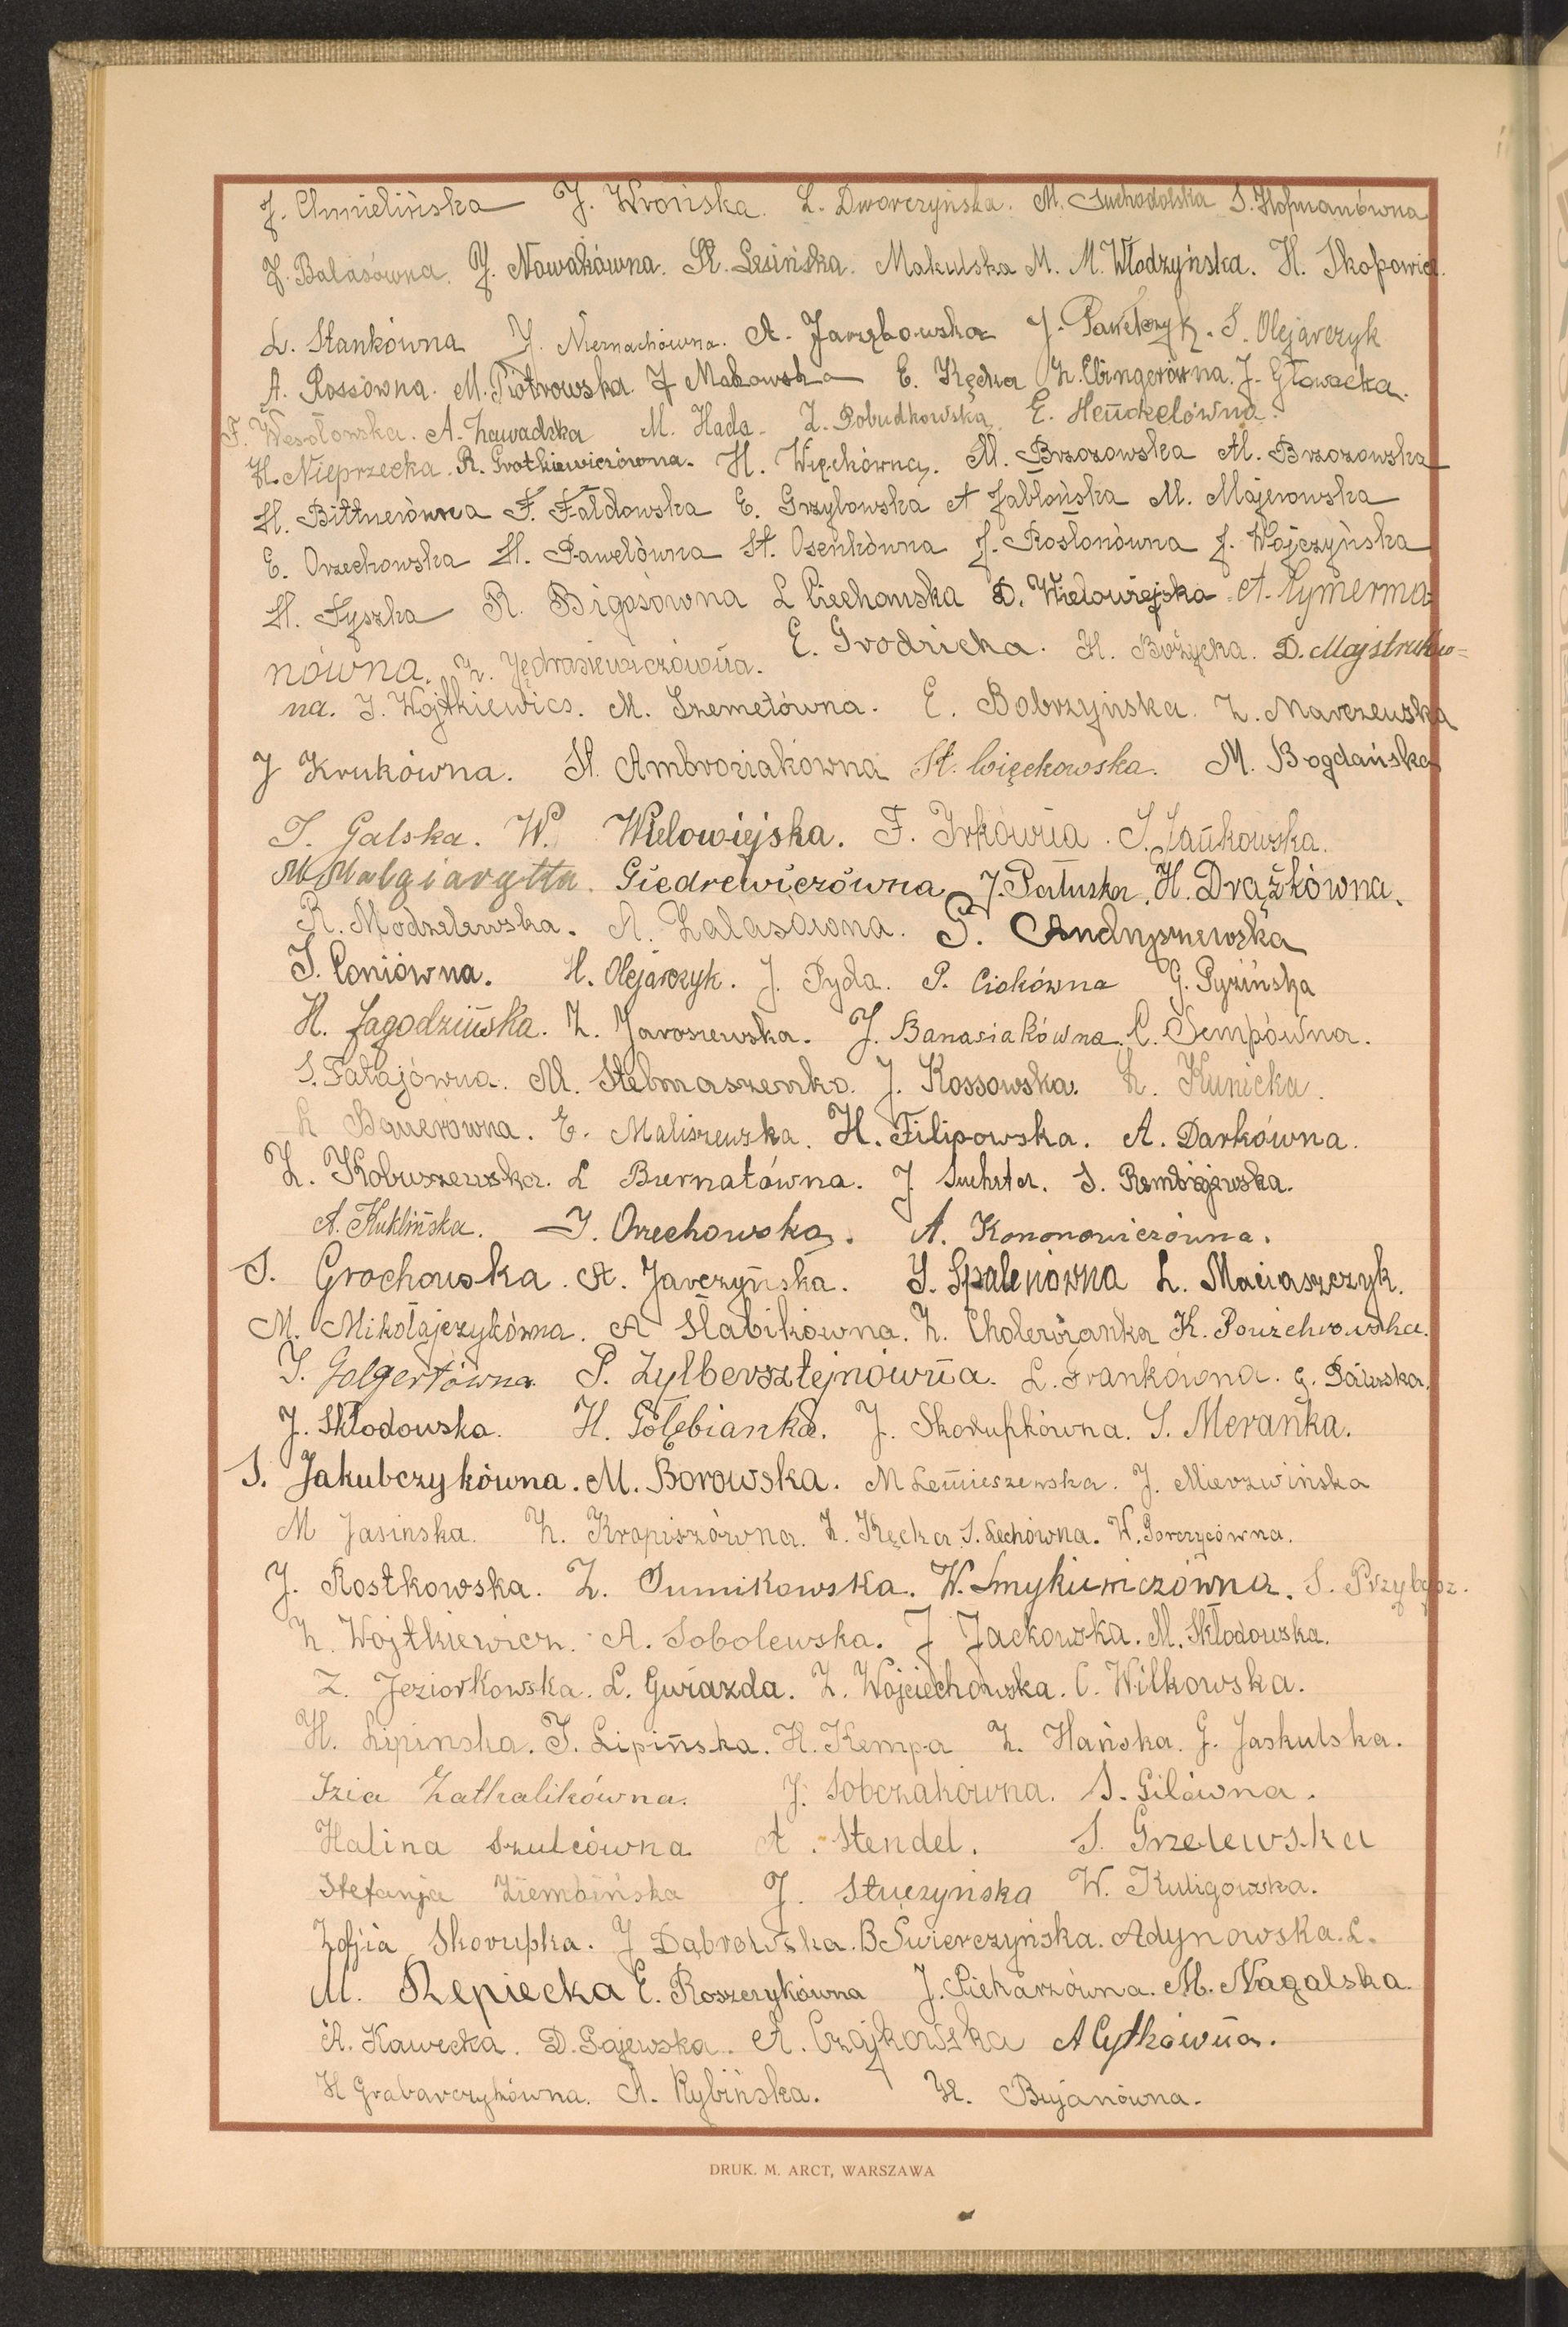 J. Chmielińska J. Wrońska. L. Dworczyńska. M. Suchodolska S. Hofmanówna
J. Balasówna. J. Nowakówna. St. Lesińska. Makulska M. M. Włodzyńska. H. Skopowicz.
L. Stankówna J. Niernachówna. A. Jarzębowska J. Pawelczyk. S. Olejarczyk
A. Rossówna. M. Piotrowska. J Makowska E. Kęcka Z. Ebingerówna. J. Głowacka.
F. Wesołowska. A. Zawadzka M. Hada. Z. Pobudkowska. E. Henckelówna.
H. Nieprzecka. R. Grotkiewiczówna. H. Więckówna. M. Brzozowska M. Brzozowska
H. Bittnerówna F. Fałdowska E. Grzybowska A Jabłońska M. Majerowska
E. Orzechowska H. Pawelówna St. Osenkówna J. Rosłonówna J. Wójczyńska
H. Łyszka R. Bigosówna L Ciechomska D. Wielowiejska A. Cymerma
nówna. Z. Jędrasiewiczówna. E. Grodzicka. H. Bożycka. D. Majstrukw=
na. J. Wojtkiewicz. M. Szemetówna. E. Bobrzyńska. Z. Marczewska
J Krukówna. St. Ambroziakówna St. Więckowska. M. Bogdańska
T. Galska. W. Wielowiejska. F. Irkówna. S. Jankowska.
M Giedrewiczówna J. Partuska. H. Drążkówna.
R. Modzelewska. A. Zalasówna. G. Andrzejewska
J. Coniówna. H. Olejarczyk. J. Pyda. P. Ciokówna G. Pyzińska
H. Jagodzińska. Z. Jaroszewska. J. Banasiakówna. C. Sempówna.
S. Fałajówna. M. Stelmaszenko. J. Kossowska. Z. Kunicka.
L Bauerówna. E. Maliszewska. H. Filipowska. A. Darkówna.
Z. Kobuszewska. L Biernatówna. J Suchsta. S. Rembiejewska.
A. Kuklińska. J. Orzechowska. A. Kononowiczówna.
S. Grochowska. A. Jarczyńska. Y. Spalenówna L. Maciaszczyk.
M. Mikołajczykówna. A Słabikówna. Z. Cholewianka K. Powichrowska.
J. Golgertówna. P. Zylbersztejnówna. L. Frankówna. G. Pawska.
J. Skłodowska. H. Gołębianka. J. Skorupkówna. S. Merańka.
S. Jakubczykówna. M. Borowska. M Lemieszewska. J. Mierzwińska
M Jasinska. Z. Kropiszówna. Z. Kęcka S. Lechówna. W. Gorczycówna.
J. Rostkowska. Z. Sumikowska. W. Smykiewiczówna. S. Przybysz.
Z. Wojtkiewicz. A. Sobolewska. J Jackowska. M. Skłodowska.
Z. Jeziorkowska. L. Gwiazda. Z. Wojciechowska. C. Wilkowska.
H. Lipinska. J. Lipińska. H. Kempa Z. Hańska. G. Jaskulska.
Izia Zatkalikówna. J. Sobczakówna. S. Gilówna.
Halina Szulcówna A. Stendel. S. Grzelewska
Stefanja Ziembińska J. Stuczyńska W. Kuligowska.
Zofjia Skorupka. J Dąbrowska. B Świerczyńska. Adynowska. L.
M. Rzepiecka E. Roszczykówna J. Piekarzówna. M. Nagalska.
A. Kawecka. D. Gajewska. A. Czajkowska A Cytkówna.
H Grabarczykówna. A. Rybińska. H. Bujanówna.
DRUK. M. ARCT, WARSZAWA